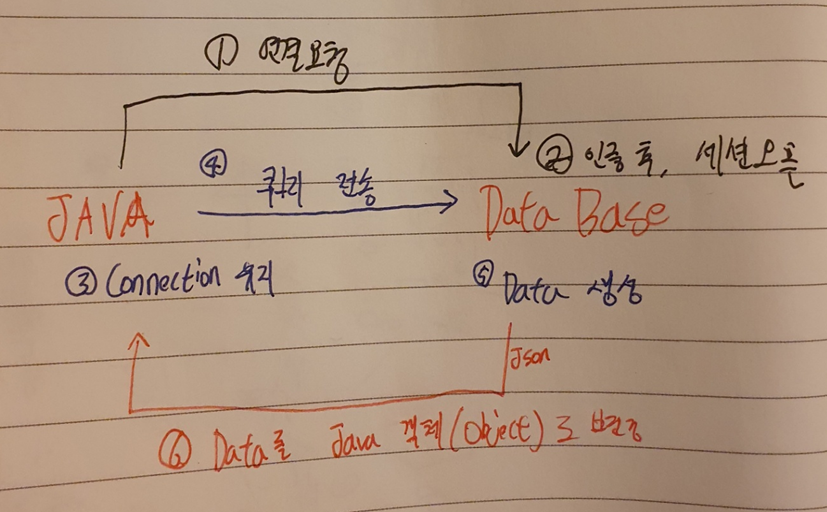 ① 연결요청
② 인증 후, 세션오픈
④ 쿼리 전송
JAVA
Data Base
③ Connection 유지
⑤ Data 생성
Json
⑥ Data를 Java 객체(Object)로 변경